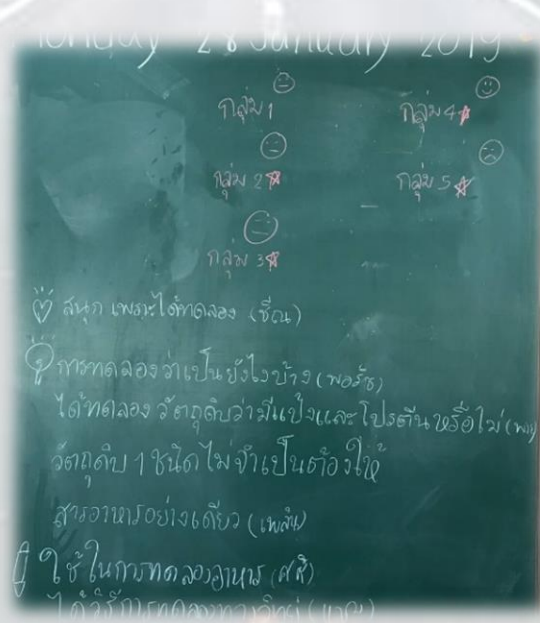 Monday 28 January 2019
กลุ่ม 1
กลุ่ม 4
กลุ่ม 2
กลุ่ม 5
กลุ่ม 3
สนุก เพราะได้ทดลอง (ชีณ)
การทดลองว่าเป็นยังไงบ้าง (พอร์ช)
ได้ทดลอง วัตถุดิบว่ามีแป้งและโปรตีนหรือไม่
วัตถุดิบ 1 ชนิดไม่จำเป็นต้องให้
สารอาหารอย่างเดียว (เพลิน)
ใช้ในการทดลองอาหาร
ได้วิธีการทดลองทางวิทย์